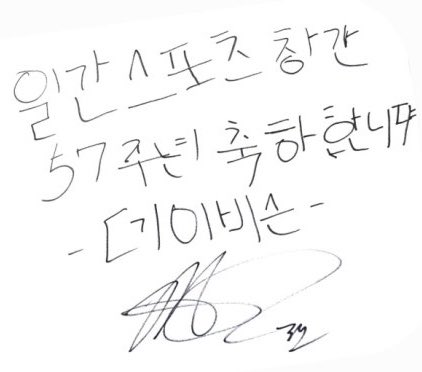 일간스포츠 창간
57주년 축하합니다
- 데이비슨 -